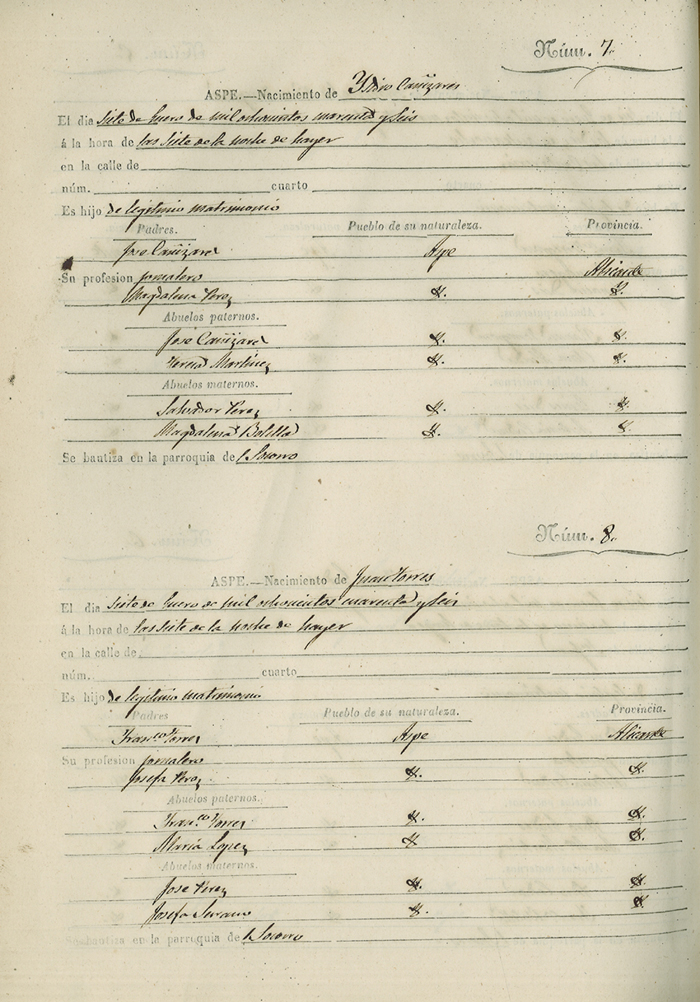 Núm. 7.
ASPE.—Nacimiento de Ysidro Cañizares
El dia siete de Enero de mil ochocientos cuarenta y seis
á la hora de las siete de la noche de hayer
en la calle de
núm. cuarto
Es hijo de legitimo matrimonio
Padres. Pueblo de su naturaleza. Provincia.
Jose Cañizares Aspe
Su profesion jornalero Alicante
Magdalena Perez
Abuelos paternos.
Jose Cañizares
Teresa Martinez
Abuelos maternos.
Salvador Perez
Magdalena Botella
Se bautiza en la parroquia del Socorro
Núm. 8.
ASPE.—Nacimiento de Juan Torres
El dia siete de Enero de mil ochocientos cuarenta y seis
á la hora de las siete de la noche de hayer
en la calle de
núm. cuarto
Es hijo de legitimo matrimonio
Padres Pueblo de su naturaleza. Provincia.
Franco Torres Aspe Alicante
Su profesion jornalero
Josefa Perez
Abuelos paternos.
Franco Torres
Maria Lopez
Abuelos maternos.
Jose Perez
Josefa Serrano
Se bautiza en la parroquia del Socorro